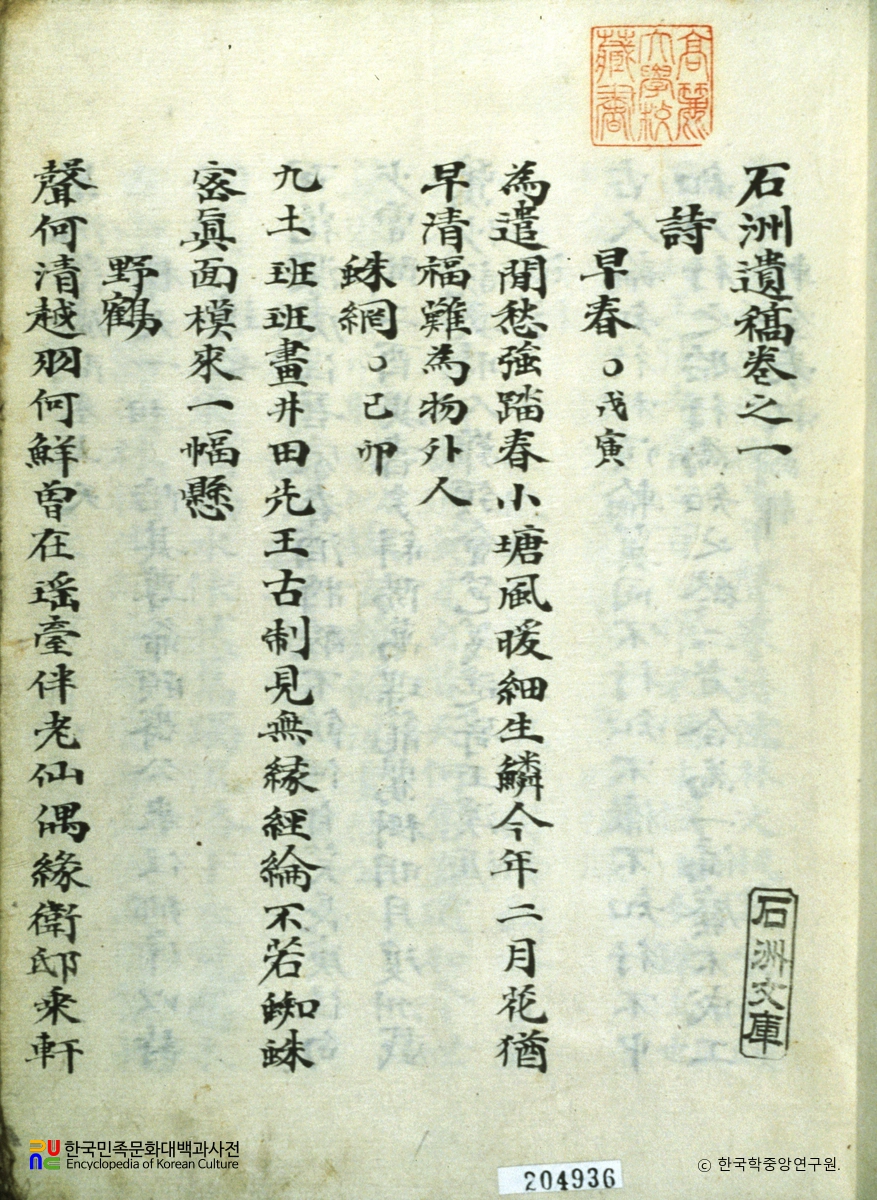 高麗
大學校
藏書
石洲遺稿卷之一
詩
早春○戊寅
為遣閒愁強踏春小塘風暖細生鱗今年二月花猶
早清福難為物外人
蛛網○己卯
九土班班畫井田先王古制見無緣經綸不若蜘蛛
密眞面模來一幅懸
野鶴
聲何清越羽何鮮曾在瑶臺伴老仙偶緣衛邸乘軒
石洲文庫
한국민족문화대백과사전
Encyclopedia of Korean Culture
204936
ⓒ 한국학중앙연구원.